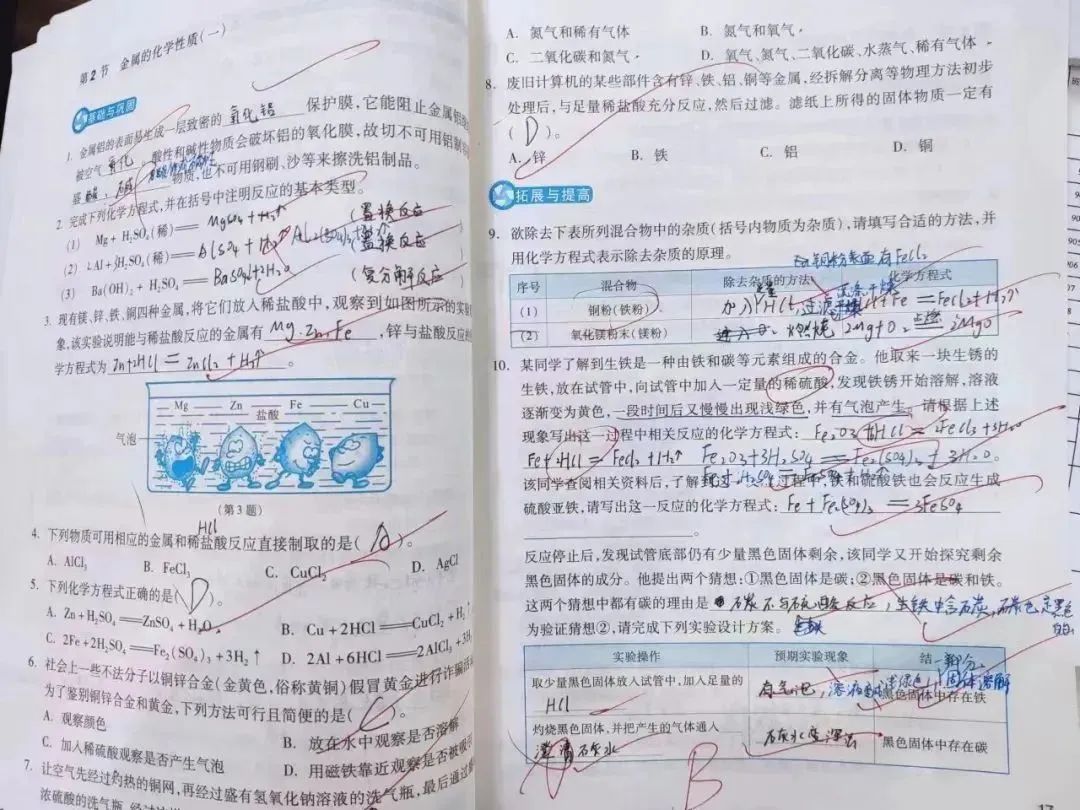 第2节 金属的化学性质(一)
基础与巩固
1. 金属铝的表面易生成一层致密的 氧化铝 保护膜,它能阻止金属铝
被空气 氧化 。酸性和碱性物质会破坏铝的氧化膜,故切不可用铝制
酸、碱 物质,也不可用钢刷、沙等来擦洗铝制品。
2. 完成下列化学方程式,并在括号中注明反应的基本类型。
(1) Mg + H₂SO₄(稀) == MgSO₄ + H₂↑ (置换反应
(2) Al + H₂SO₄(稀) == (置换反应
(3) Ba(OH)₂ + H₂SO₄ == BaSO₄↓+2H₂O (复分解反应)
3. 现有镁、锌、铁、铜四种金属,将它们放入稀盐酸中,观察到如图所示的实
象,该实验说明能与稀盐酸反应的金属有 Mg.Zn.Fe ,锌与盐酸反应的
学方程式为 Zn+2HCl == ZnCl₂ + H₂↑ 。
Mg Zn Fe Cu
盐酸
气泡
(第3题)
HCl
4. 下列物质可用相应的金属和稀盐酸反应直接制取的是( A )。
A. AlCl₃ B. FeCl₃ C. CuCl₂ D. AgCl
5. 下列化学方程式正确的是( D )。
A. Zn+H₂SO₄ == ZnSO₄ + H₂O B. Cu + 2HCl == CuCl₂ + H₂↑
C. 2Fe+2H₂SO₄ == Fe₂(SO₄)₃ +3H₂↑ D. 2Al+6HCl == 2AlCl₃ +3H
6. 社会上一些不法分子以铜锌合金(金黄色,俗称黄铜)假冒黄金进行诈骗活
为了鉴别铜锌合金和黄金,下列方法可行且简便的是( C )。
A. 观察颜色 B. 放在水中观察是否溶解
C. 加入稀硫酸观察是否产生气泡 D. 用磁铁靠近观察是否被吸
7. 让空气先经过灼热的铜网,再经过盛有氢氧化钠溶液的洗气瓶,最后通过
浓硫酸的洗气瓶
A. 氮气和稀有气体 B. 氮气和氧气
C. 二氧化碳和氮气 D. 氧气、氮气、二氧化碳、水蒸气、稀有气体
8. 废旧计算机的某些部件含有锌、铁、铝、铜等金属,经拆解分离等物理方法初步
处理后,与足量稀盐酸充分反应,然后过滤。滤纸上所得的固体物质一定有
( D )。
A. 锌 B. 铁 C. 铝 D. 铜
拓展与提高
9. 欲除去下表所列混合物中的杂质(括号内物质为杂质),请填写合适的方法,并
用化学方程式表示除去杂质的原理。
铜粉表面有FeCl₂
序号 混合物 除去杂质的方法 化学方程式
洗涤干燥
(1) 铜粉(铁粉) 加入 HCl,过滤 Fe == FeCl₂+H₂↑
(2) 氧化镁粉末(镁粉) 燃烧 2Mg+O₂ 点燃 2MgO
10. 某同学了解到生铁是一种由铁和碳等元素组成的合金。他取来一块生锈的
生铁,放在试管中,向试管中加入一定量的稀硫酸,发现铁锈开始溶解,溶液
逐渐变为黄色,一段时间后又慢慢出现浅绿色,并有气泡产生。请根据上述
现象写出这一过程中相关反应的化学方程式: Fe₂O₃+6HCl = 2FeCl₃+3H₂O
Fe+2HCl = FeCl₂ +H₂↑ Fe₂O₃+3H₂SO₄ == Fe₂(SO₄)₃ + 3H₂O。
该同学查阅相关资料后,了解到过程中,铁和硫酸铁也会反应生成
硫酸亚铁,请写出这一反应的化学方程式: Fe + Fe₂(SO₄)₃ == 3FeSO₄
反应停止后,发现试管底部仍有少量黑色固体剩余,该同学又开始探究剩余
黑色固体的成分。他提出两个猜想:①黑色固体是碳;②黑色固体是碳和铁。
这两个猜想中都有碳的理由是 碳不与硫酸反应,生铁中含石炭,石炭也是黑色
的
为验证猜想②,请完成下列实验设计方案。
实验操作 预期实验现象 结
一部分
取少量黑色固体放入试管中,加入足量的 有气泡,溶液变浅绿色 固体溶解
HCl 黑色固体中存在铁
灼烧黑色固体,并把产生的气体通入 石灰水变浑浊 黑色固体中存在碳
澄清石灰水
B